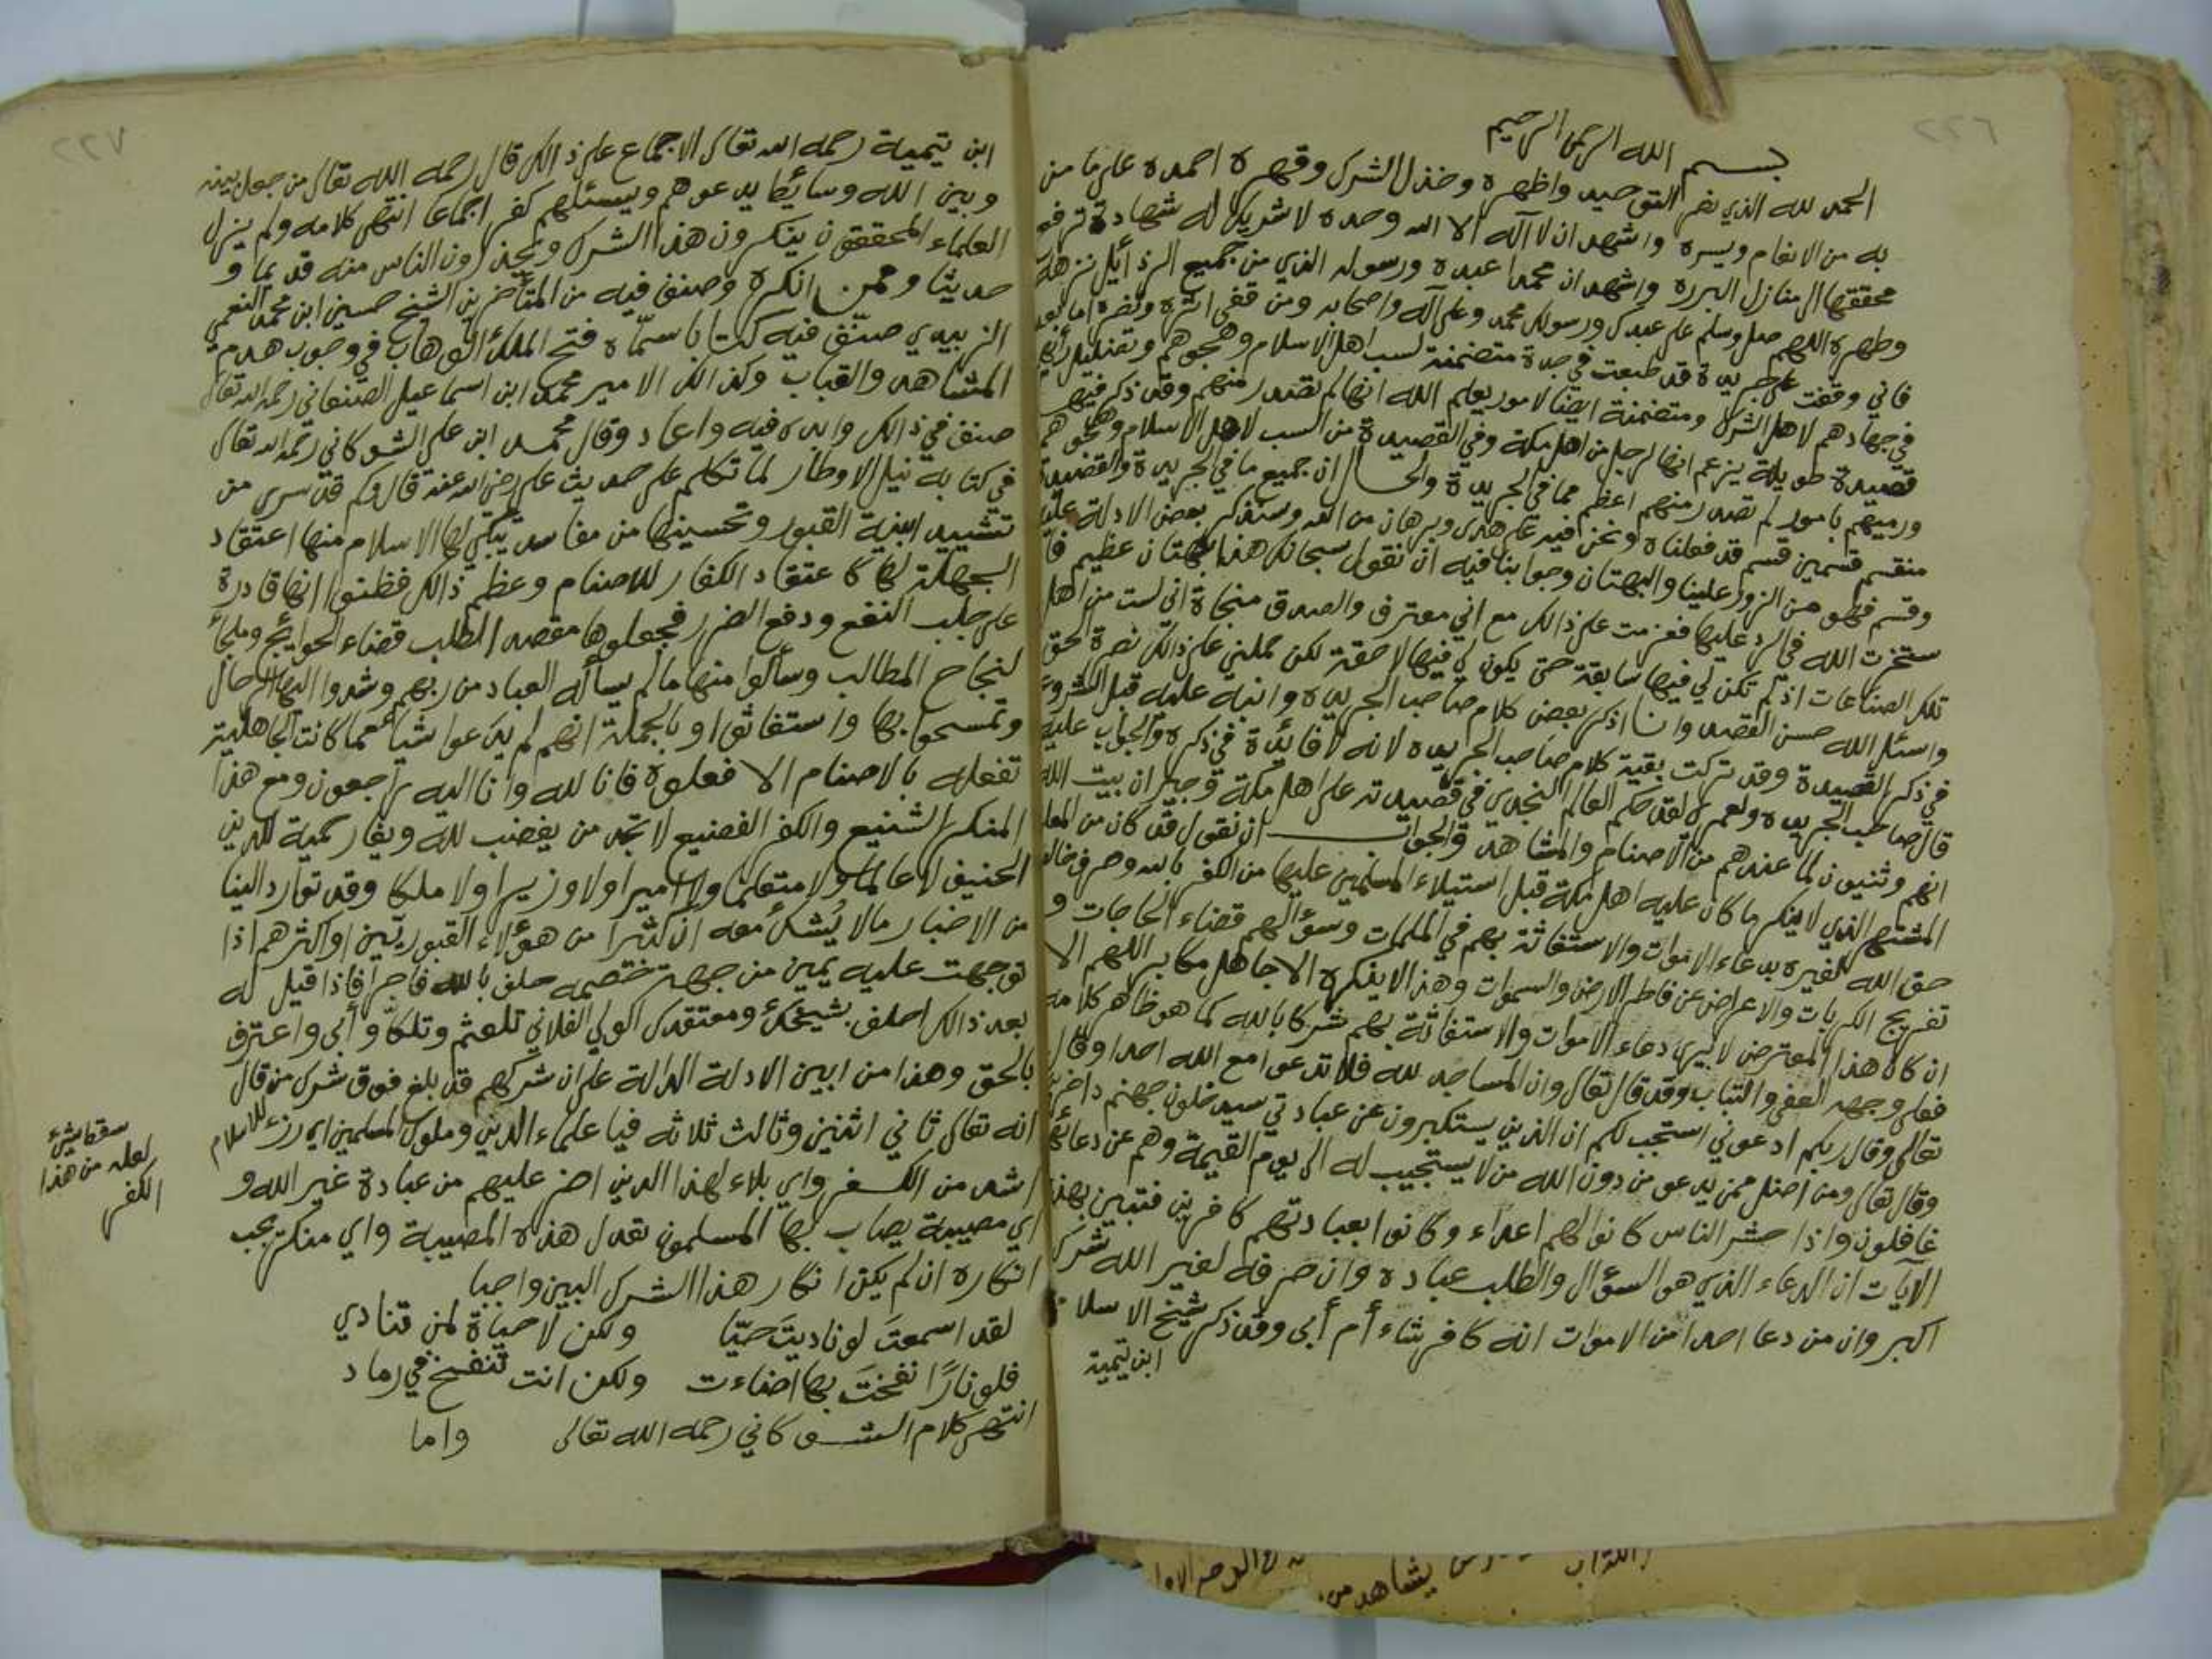 بسم الله الرحمن الرحيم
الحمد لله الذي نصر التوحيد واظهره وخذل الشرك وقهره احمده على ما من
به من الانعام ويسره واشهد ان لا آله الا الله وحده لا شريك له شهادة ترفع
محققها الى منازل البرره واشهد ان محمدا عبده ورسوله الذي من جميع الرذائل نزهه
وطهره اللهم صل وسلم على عبدك ورسولك محمد وعلى آله واصحابه ومن قفى اثره ونصره اما بعد
فاني وقفت على جريدة قد طبعت في جدة متضمنة لسب اهل الاسلام وهجوهم وتضليل رأيهم
في جهادهم لاهل الشرك ومتضمنة ايضا لامور يعلم الله انها لم تصدر منهم وقد ذكر فيها
قصيدة طويلة يزعم انها لرجل من اهل مكة وفي القصيدة من السب لاهل الاسلام وهجوهم
ورميهم بامور لم تصدر منهم اعظم مما في الجريدة والحال ان جميع ما في الجريدة والقصيدة
منقسم قسمين قسم قد فعلناه ونحن فيه على هدى وبرهان من الله وسنذكر بعض الادلة عليه
وقسم فهو من الزور علينا والبهتان وجوابنا فيه ان نقول سبحانك هذا بهتان عظيم فا
ستخرت الله في الرد عليها فعزمت على ذالك مع اني معترف والصدق منجاة اني لست من اهل
تلك الصناعات اذ لم تكن لي فيها سابقة حتى يكون لي فيها لاحقة لكن حملني على ذالك نصرة الحق
واسئل الله حسن القصد وانا اذكر بعض كلام صاحب الجريده وانبه عليه قبل الشروع
في ذكر القصيدة وقد تركت بقية كلام صاحب الجريده لانه لا فائدة في ذكره والجواب عليه
قال صاحب الجريده ولعمري لقد حكم العالم النجدي في قصيدته على اهل مكة وجيران بيت الله
انهم وثنيون لما عندهم من الاصنام والمشاهد والجواب ان نقول قد كان من المعلوم
المشتهر الذي لا ينكر ما كان عليه اهل مكة قبل استيلاء المسلمين عليها من الكفر بالله وصرف خالص
حق الله لغيره بدعاء الاموات والاستغاثة بهم في الملمات وسؤالهم قضاء الحاجات و
تفريج الكربات والاعراض عن فاطر الارض والسموات وهذا لا ينكره الا جاهل مكابر اللهم الا
ان كان هذا المعترض لا يرى دعاء الاموات والاستغاثة بهم شركا بالله كما هو ظاهر كلامه
فعلى وجهه العفى والتباب وقد قال تعالى وان المساجد لله فلا تدعوا مع الله احدا وقال
تعالى وقال ربكم ادعوني استجب لكم ان الذين يستكبرون عن عبادتي سيدخلون جهنم داخرين
وقال تعالى ومن اضل ممن يدعو من دون الله من لا يستجيب له الى يوم القيمة وهم عن دعائهم
غافلون واذا حشر الناس كانوا لهم اعداء وكانوا بعبادتهم كافرين فتبين بهذه
الآيات ان الدعاء الذي هو السؤال والطلب عباده وان صرفه لغير الله شرك
اكبر وان من دعا احدا من الاموات انه كافر شاء أم أبى وقد ذكر شيخ الاسلام
ابن تيمية
ابن تيمية رحمه الله تعالى الاجماع على ذالك قال رحمه الله تعالى من جعل بينه
وبين الله وسائط يدعوهم ويسئلهم كفر اجماعا انتهى كلامه ولم يزل
العلماء المحققون ينكرون هذا الشرك ويحذرون الناس منه قديما و
حديثا وممن انكره وصنف فيه من المتأخرين الشيخ حسين ابن محمد النعمي
الزبيدي صنّف فيه كتابا سمّاه فتح الملك الوهاب في وجوب هدم
المشاهد والقباب وكذالك الامير محمد ابن اسماعيل الصنعاني رحمه الله تعالى
صنف في ذالك وابده فيه واعاد وقال محمد ابن علي الشوكاني رحمه الله تعالى
في كتابه نيل الاوطار لما تكلم على حديث علي رضي الله عنه قال وكم قد سرى من
تشييد ابنية القبور وتحسينها من مفاسد يبكي لها الاسلام منها اعتقاد
الجهلة لها كاعتقاد الكفار للاصنام وعظم ذالك فظنوا انها قادرة
على جلب النفع ودفع الضرر فجعلوها مقصد الطلب قضاء الحوائج وملجأ
لنجاح المطالب وسألوا منها ما لم يسأله العباد من ربهم وشدوا اليها الرحال
وتمسحوا بها واستغاثوا وبالجملة انهم لم يدعوا شيأ مما كانت الجاهلية
تفعله بالاصنام الا فعلوه فانا لله وانا اليه راجعون ومع هذا
المنكر الشنيع والكفر الفضيع لا تجد من يغضب لله ويغار حمية للدين
الحنيف لا عالما ولا متعلما ولا اميرا ولا وزيرا ولا ملكا وقد توارد الينا
من الاخبار ما لا يُشك معه ان كثيرا من هؤلاء القبوريين او اكثرهم اذا
توجهت عليه يمين من جهة خصمه حلف بالله فاجرا فاذا قيل له
بعد ذالك احلف بشيخك ومعتقدك الولي الفلاني تلعثم وتلكأ وأبى واعترف
بالحق وهذا من ابين الادلة الدالة على ان شركهم قد بلغ فوق شرك من قال
انه تعالى ثاني اثنين وثالث ثلاثه فيا علماء الدين وملوك المسلمين اي رزء للاسلام
اشد من الكفر واي بلاء لهذا الدين اضر عليهم من عبادة غير الله و
اي مصيبة يصاب بها المسلمون تعدل هذه المصيبة واي منكر يجب
انكاره ان لم يكن انكار هذا الشرك البين واجبا
لقد اسمعتَ لو ناديتَ حيّا ولكن لا حياة لمن تنادي
فلو نارًا نفختَ بها اضاءت ولكن انت تنفخ في رماد
انتهى كلام الشوكاني رحمه الله تعالى واما
سقط شيء
لعله من هذا
الكفر